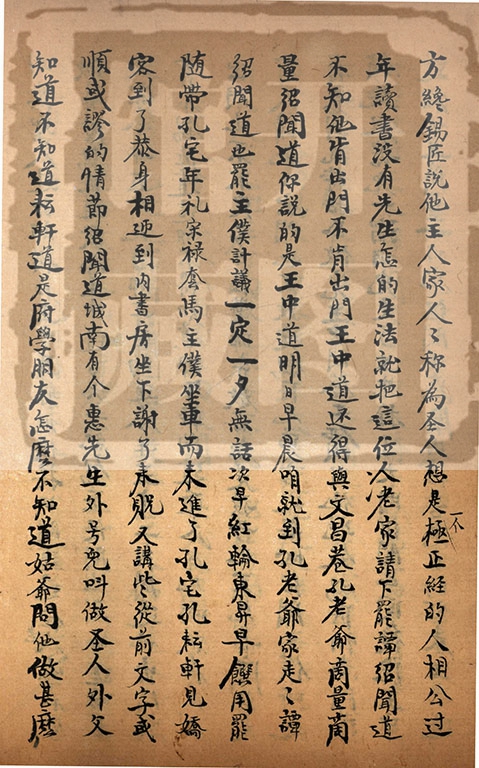 方纔錫匠説他主人家人々称為圣人想是一个極正经的人相公过
年讀書没有先生怎的生法就把這位人老家請下罷譚绍聞道
不知他肯出門不肯出門王中道还得與文昌巷孔老爺商量商
量绍聞道你説的是王中道明日早晨咱就到孔老爺家走々譚
绍聞道也罷主僕計議一定一夕無話次早紅輪東昇早饌用罷
随帶孔宅年礼宋禄套馬主僕坐車而来進了孔宅孔耘軒見嬌
客到了恭身相迎到内書房坐下謝了来貺又講些從前文字或
順或謬的情節绍聞道城南有个惠先生外号兒叫做圣人外父
知道不知道耘軒道是府學朋友怎麽不知道姑爺問他做甚麽